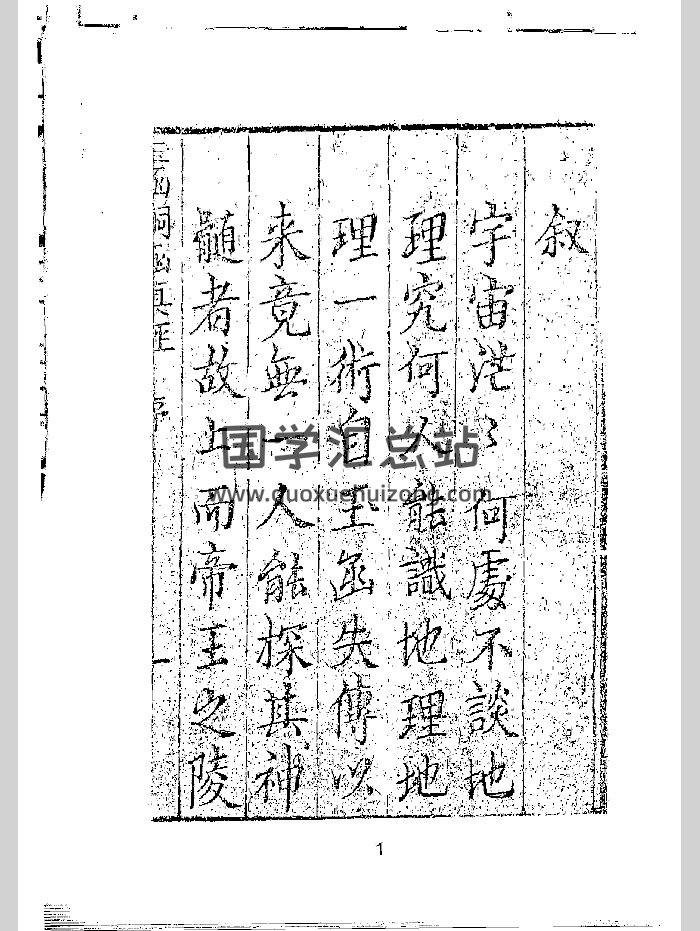 叙
宇宙茫〻何處不談地
理究何人能識地理地
理一術自玉函失傳以
来竟無一人能探其神
髓者故上而帝王之陵
玉函銅函真經 序 一
国学汇总站
www.guoxuehuizong.com
1